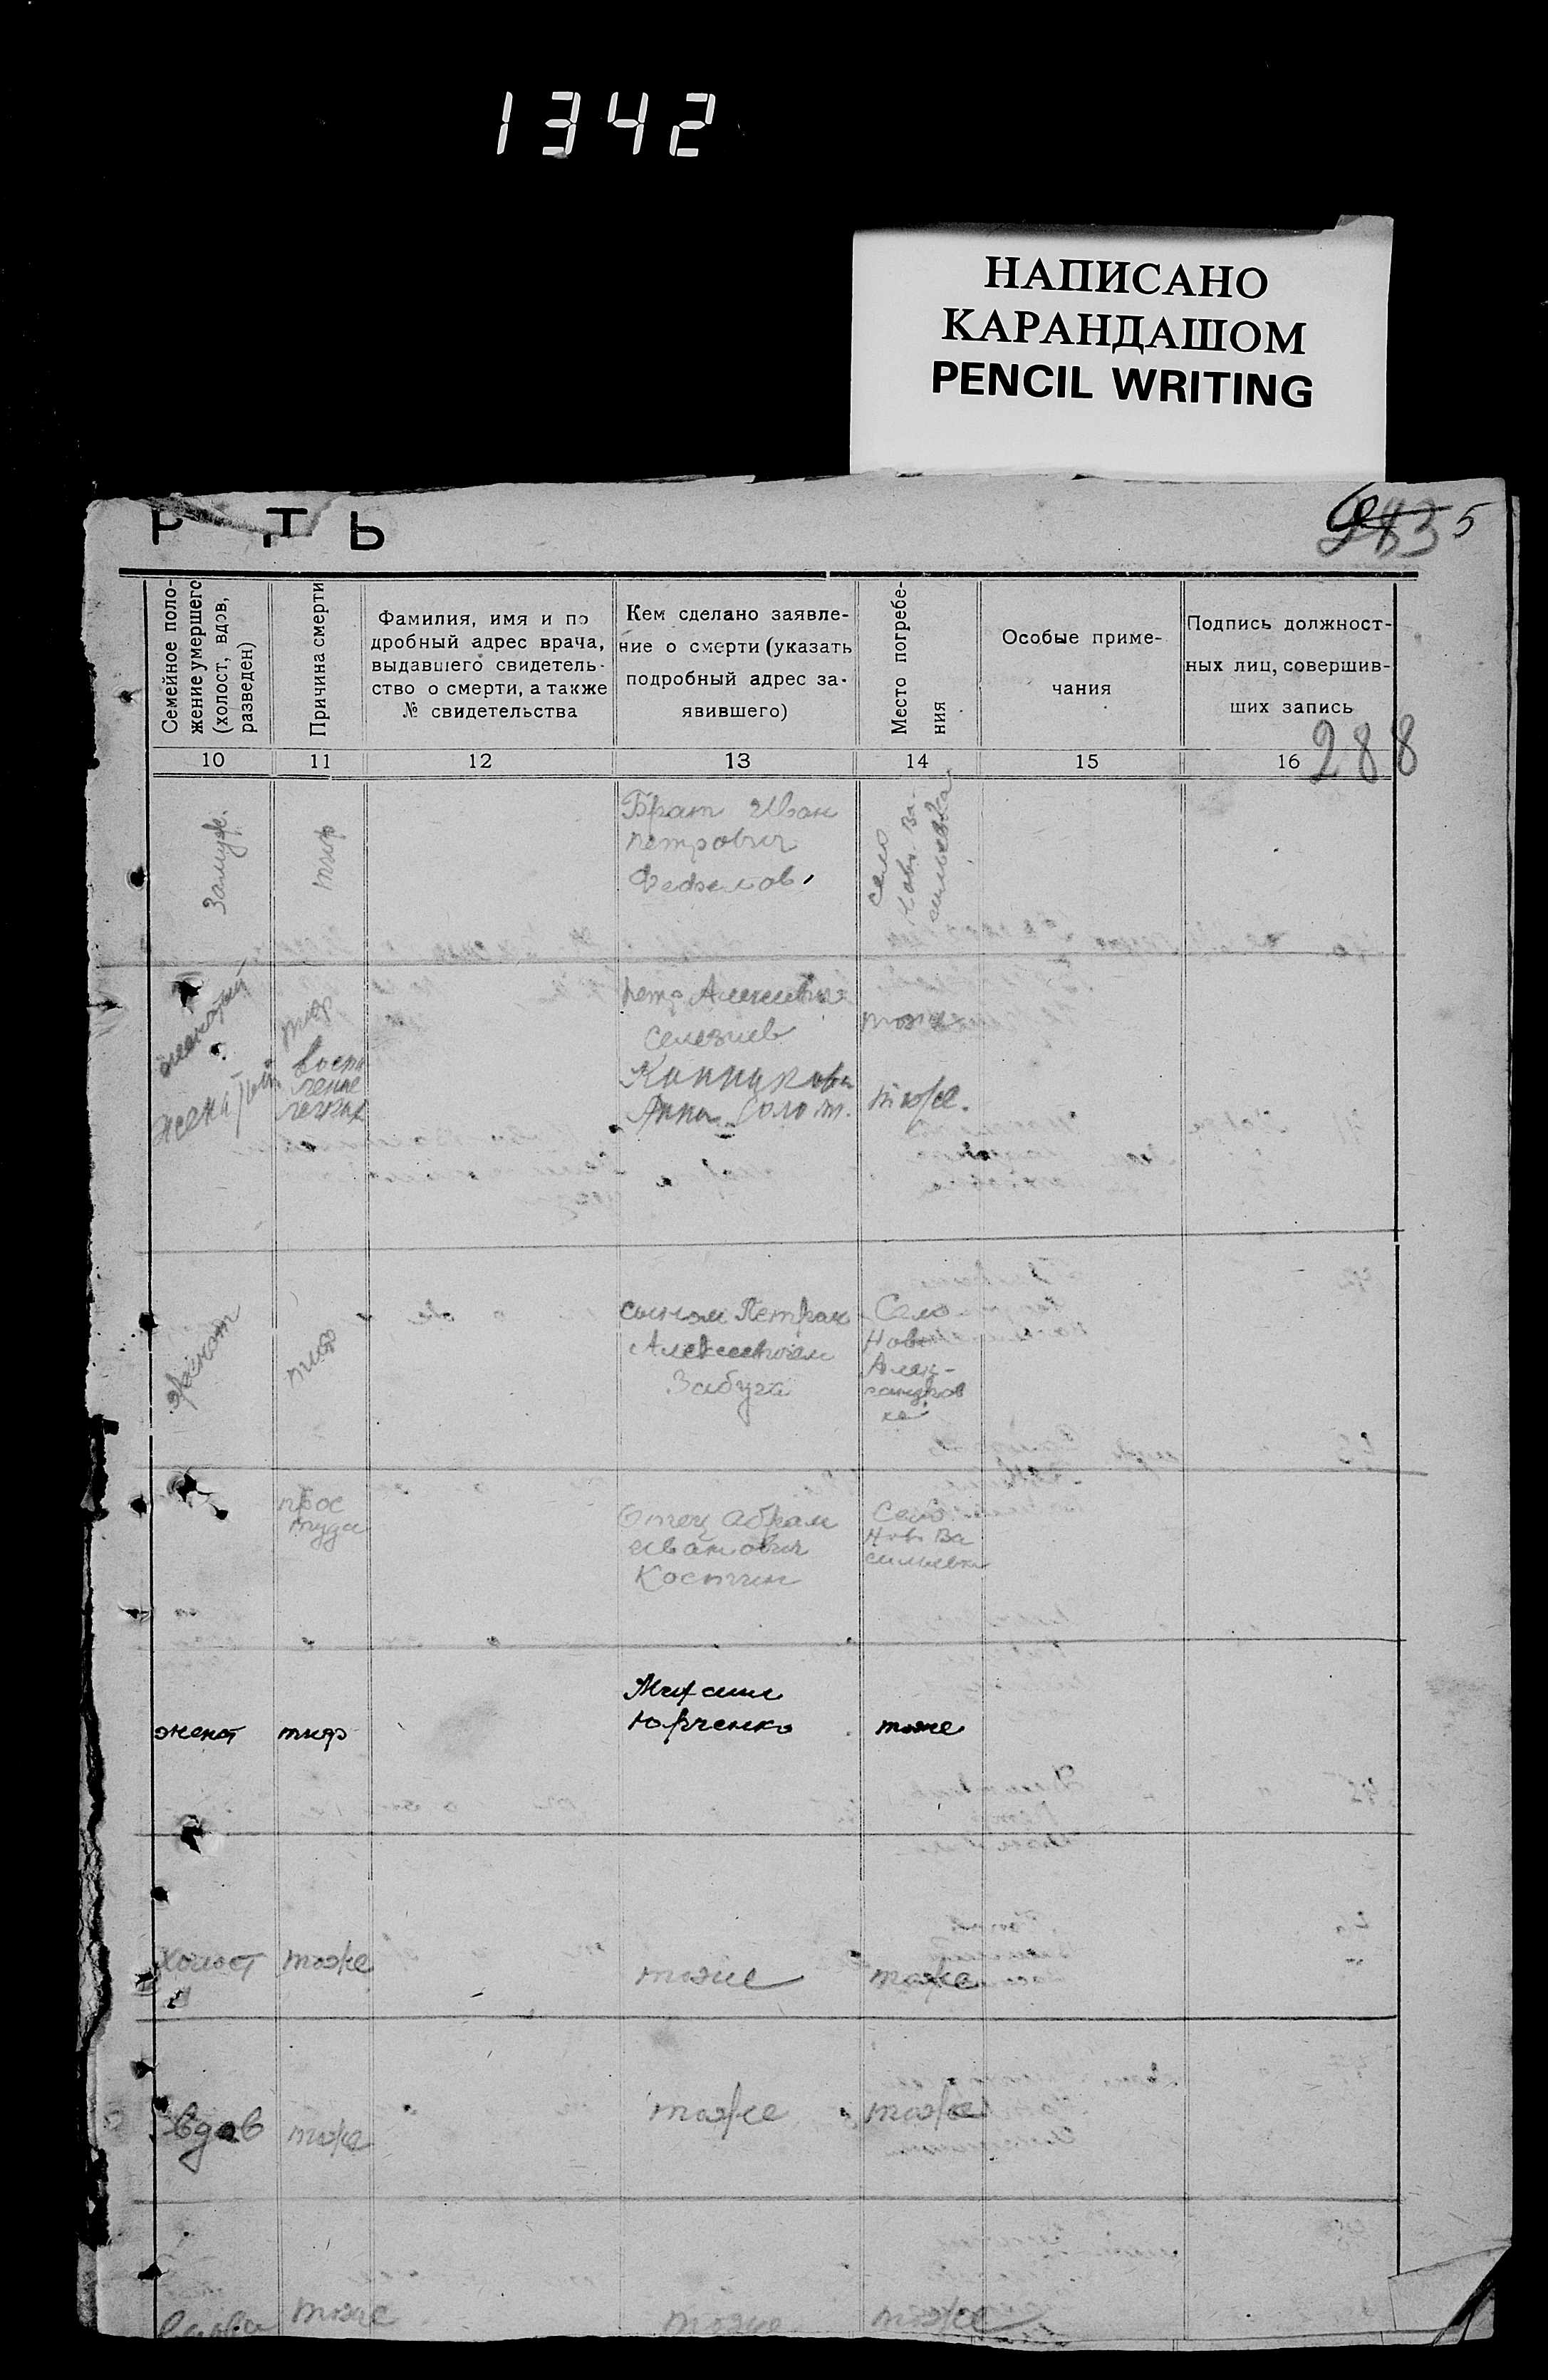 1342
НАПИСАНО
КАРАНДАШОМ
PENCIL WRITING
Р Т Ь
283 5
Семейное поло-
жение умершего
(холост, вдов,
разведен)
Причина смерти
Фамилия, имя и по
дробный адрес врача,
выдавшего свидетель-
ство о смерти, а также
№ свидетельства
Кем сделано заявле-
ние о смерти (указать
подробный адрес за-
явившего)
Место погребе-
ния
Особые приме-
чания
Подпись должност-
ных лиц, совершив-
ших запись
10 11 12 13 14 15 16
288
Замуж.
тиф
Брат Иван
петрович
село
Нов. Ва-
сильевка
женатый
тиф
петр Алексеевич
Селезнев
тоже
женатый
воспа
ление
легких
Анна
тоже.
женат
тиф
сыном Петром
Алексеевичем
Село
Ново
Алек-
сандров
ка
прос
туда
Отец Абрам
иванович
Костин
Село
Нов Ва
сильевка
женат
тиф
Михаил
Юрченко
тоже
холост
тоже
тоже
тоже
вдов
тоже
тоже
тоже
вдова
тоже
тоже
тоже